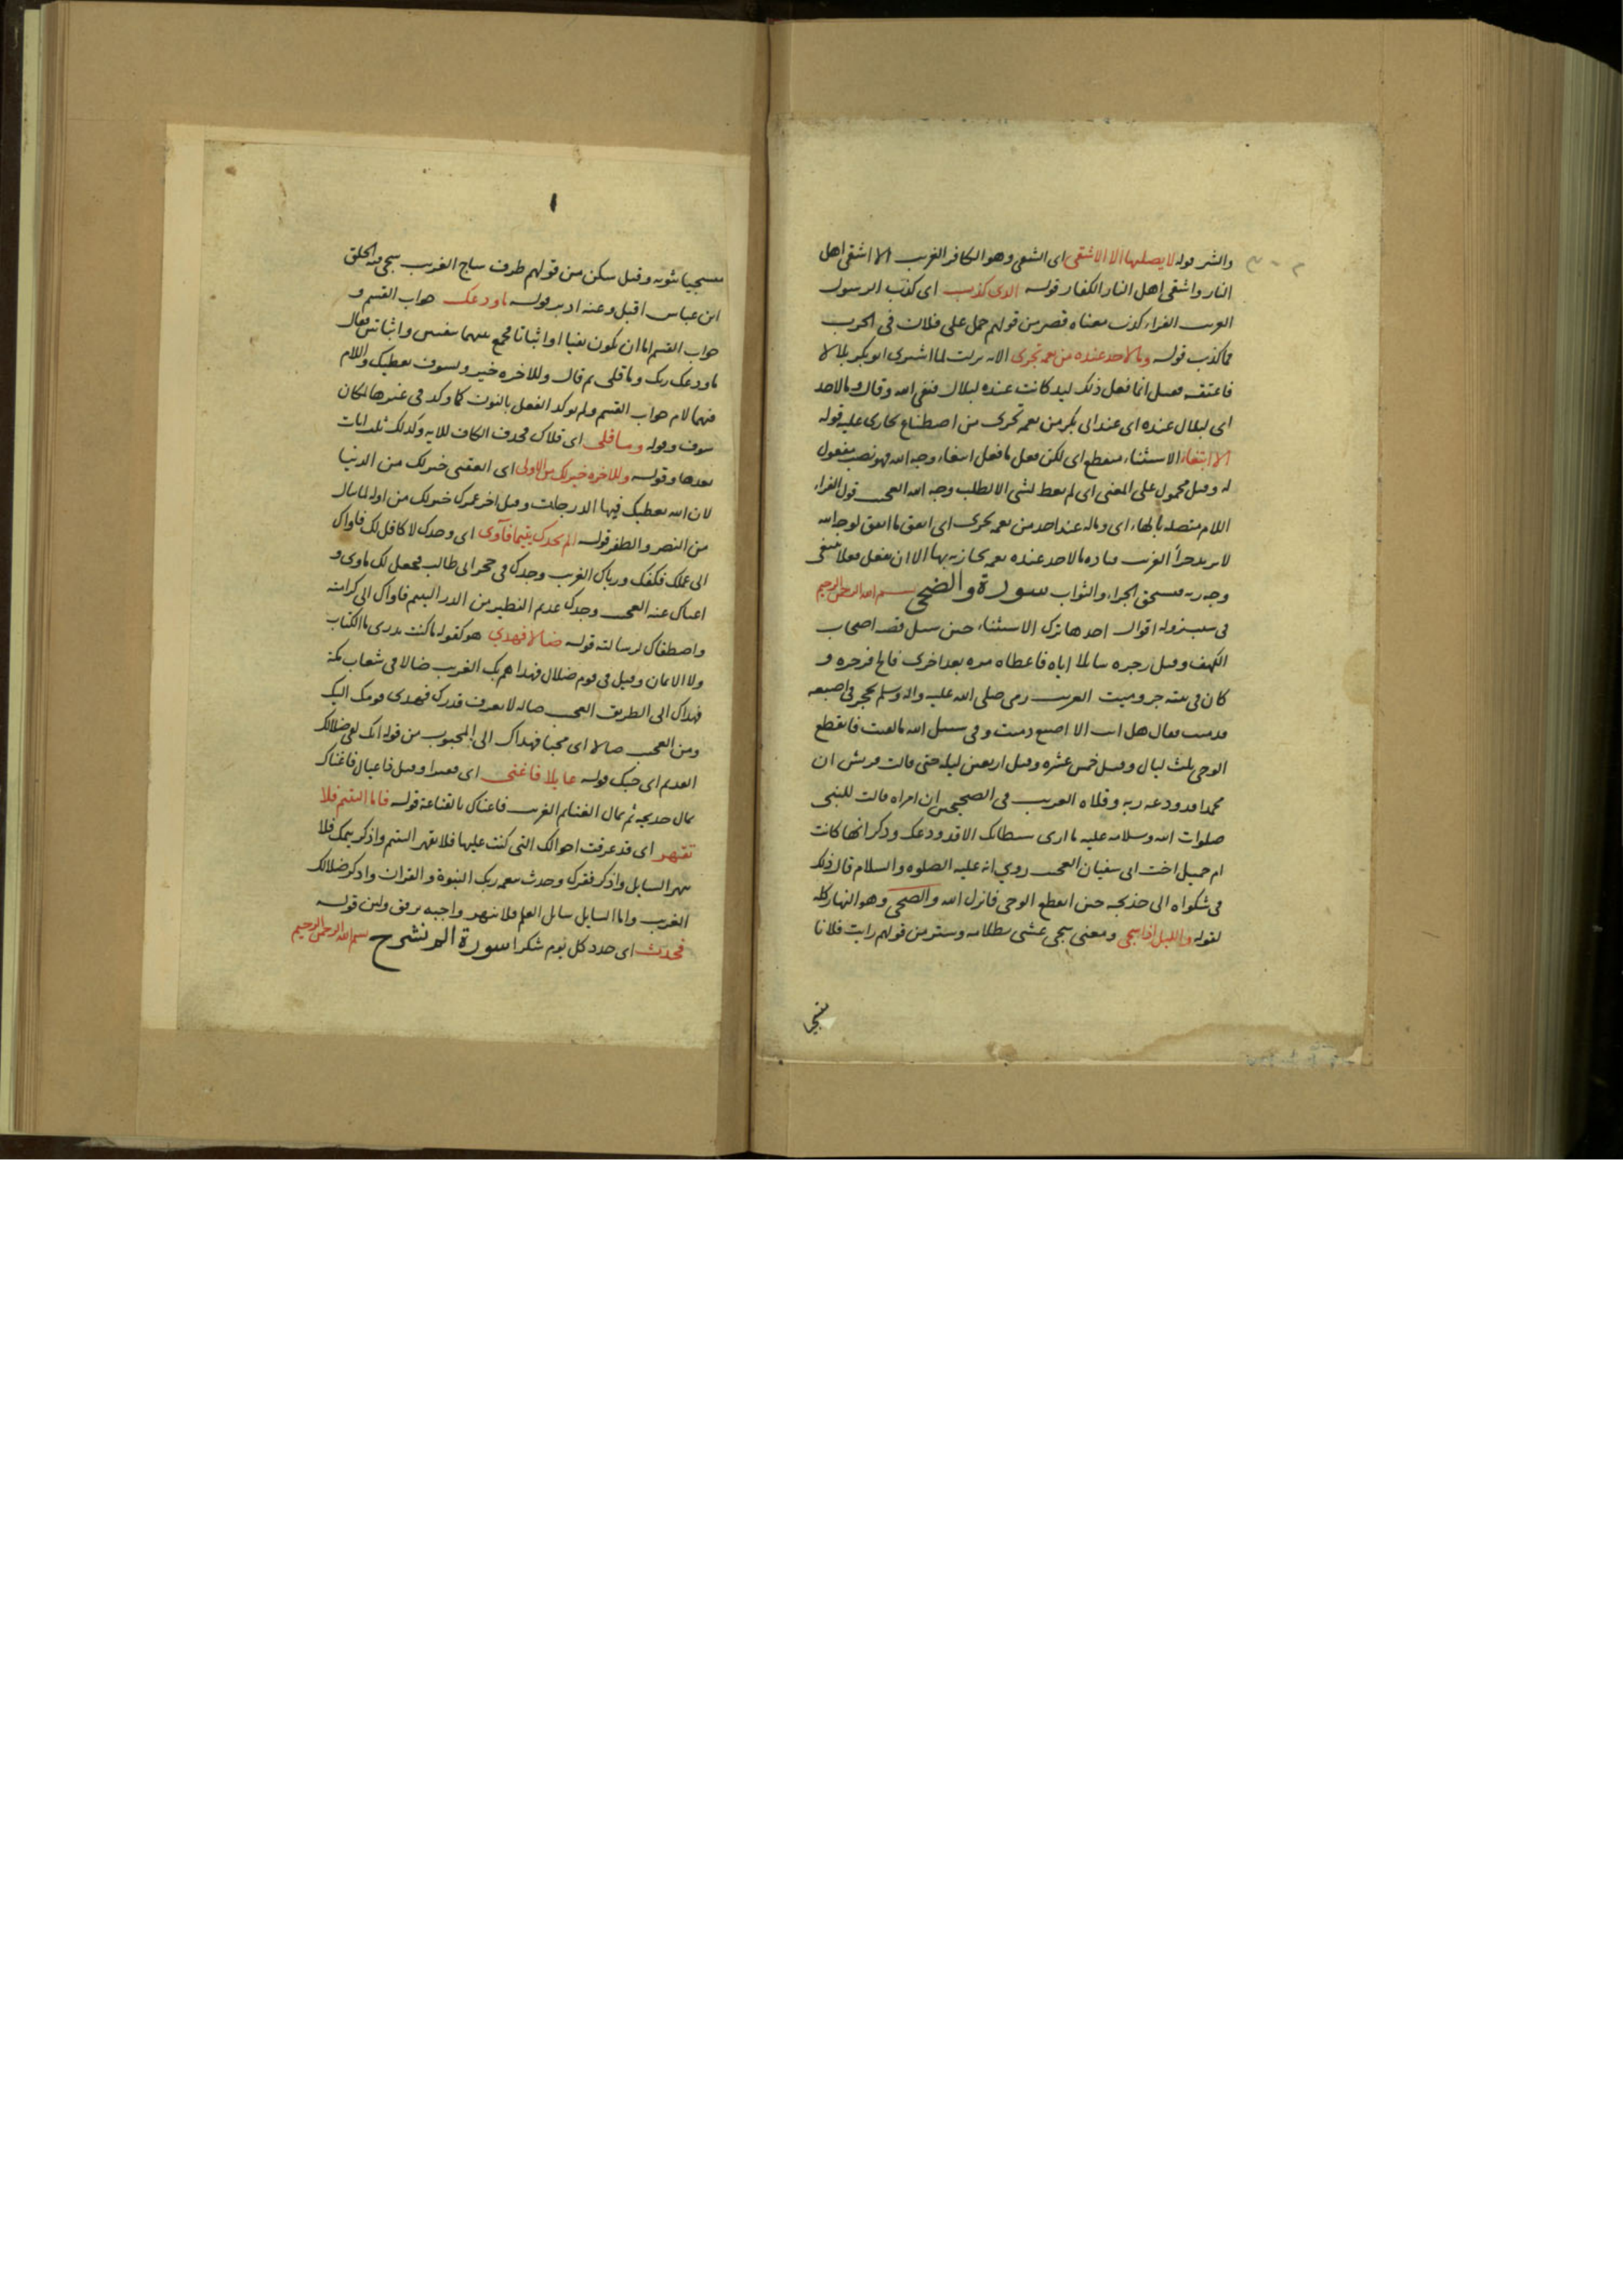 والشر قوله لا يصليها الا الاشقى اى الشقى وهو الكافر الغريب الا اشقى اهل
النار واشقى اهل النار الكفار قوله الذى كذب اى كذب الرسول
الغريب الفراء كذب معناه قصر من قولهم حمل على فلان فى الحرب
فما كذب قوله وما لاحد عنده من نعمة تجزى الايه نزلت لما اشترى ابو بكر بلالا
فاعتقه فقيل انما فعل ذلك ليد كانت عنده لبلال فنفى الله وقال وما لاحد
اى لبلال عنده اى عند ابى بكر من نعمة تجزى من اصطناع يجازى عليه قوله
الا ابتغاء الاستثناء منقطع اى لكن فعل ما فعل ابتغاء وجه الله فهو نصب مفعول
له وقيل محمول على المعنى اى لم يعط لشى الا لطلب وجه الله العجب قول الفراء
اللام متصلة بالهاء اى وماله عند احد من نعمة تجزى اى انفق ما انفق لوجه الله
لا يريد جزأ الغريب وما لاحد عنده نعمة يجازيه بها الا ان يفعل فعلا يبتغى
وجه ربه فيستحق الجزاء والثواب سورة والضحى بسم الله الرحمن الرحيم
فى سبب نزوله اقوال احدها ترك الاستثناء حين سيل قصة اصحاب
الكهف وقيل زجره سايلا اياه فاعطاه مرة بعد اخرى فالح فزجره و
كان فى بيته جرو ميت الغريب رمى صلى الله عليه واله وسلم بحجر فى اصبعه
فدميت فقال هل انت الا اصبع دميت وفى سبيل الله ما لقيت فانقطع
الوحى ثلث ليال وقيل خمس عشره وقيل اربعين ليلة حتى قالت قريش ان
محمدا قد ودعه ربه وقلاه الغريب فى الصحيحين ان امراه قالت للنبى
صلوات الله وسلامه عليه ما ارى شيطانك الا قد ودعك وذكر انها كانت
ام جميل اخت ابى سفيان العجب روي انه عليه الصلوه والسلام قال ذلك
فى شكواه الى خديجه حين انقطع الوحى فانزل الله والضحى وهو النهار كله
لقوله والليل اذا سجى ومعنى سجى غشى بظلامه وستر من قولهم رايت فلانا
مسجى
مسجيا بثوبه وقيل سكن من قولهم طرف ساج الغريب سجى فيه الخلق
ابن عباس اقبل وعنه ادبر قوله ما ودعك جواب القسم و
جواب القسم اما ان يكون نفيا او اثباتا فجمع بينهما بنفيين واثباتين فقال
ما ودعك ربك وما قلى ثم قال وللاخره خير ولسوف يعطيك واللام
فيهما لام جواب القسم ولم يوكد الفعل بالنون كما وكد فى غيرها لمكان
سوف وقوله وما قلى اى قلاك فحذف الكاف للايه وكذلك ثلث ايات
بعدها وقوله وللاخره خير لك من الاولى اى العقبى خير لك من الدنيا
لان الله يعطيك فيها الدرجات وقيل اخر عمرك خير لك من اوله لما ينال
من النصر والظفر قوله الم يجدك يتيما فآوى اى وجدك لا كافل لك فاواك
الى عمك فكفلك ورباك الغريب وجدك فى حجر ابى طالب فجعل لك ماوى و
اغناك عنه العجب وجدك عديم النظير من الدر اليتيم فاواك الى كرامته
واصطفاك لرسالته قوله ضالا فهدى هو كقوله ما كنت تدرى ما الكتاب
ولا الايمان وقيل فى قوم ضلال فهداهم بك الغريب ضالا فى شعاب مكة
فهداك الى الطريق العجب ضاله لا يعرف قدرك فهدى قومك اليك
ومن العجب ضالا اى محبا فهداك الى المحبوب من قوله انك لفى ضلالك
القديم اى حبك قوله عايلا فاغنى اى فقيرا وقيل ذا عيال فاغناك
بمال خديجه ثم بمال الغنايم الغريب فاغناك بالقناعة قوله فاما اليتيم فلا
تقهر اى قد عرفت احوالك التى كنت عليها فلا تقهر اليتيم واذكر يتمك فلا
تنهر السايل واذكر فقرك وحدث بنعمة ربك النبوة والقران واذكر ضلالك
الغريب واما السايل سايل العلم فلا تنهر واجبه برفق ولين قوله
فحدث اى جدد كل يوم شكرا سورة الم نشرح بسم الله الرحمن الرحيم